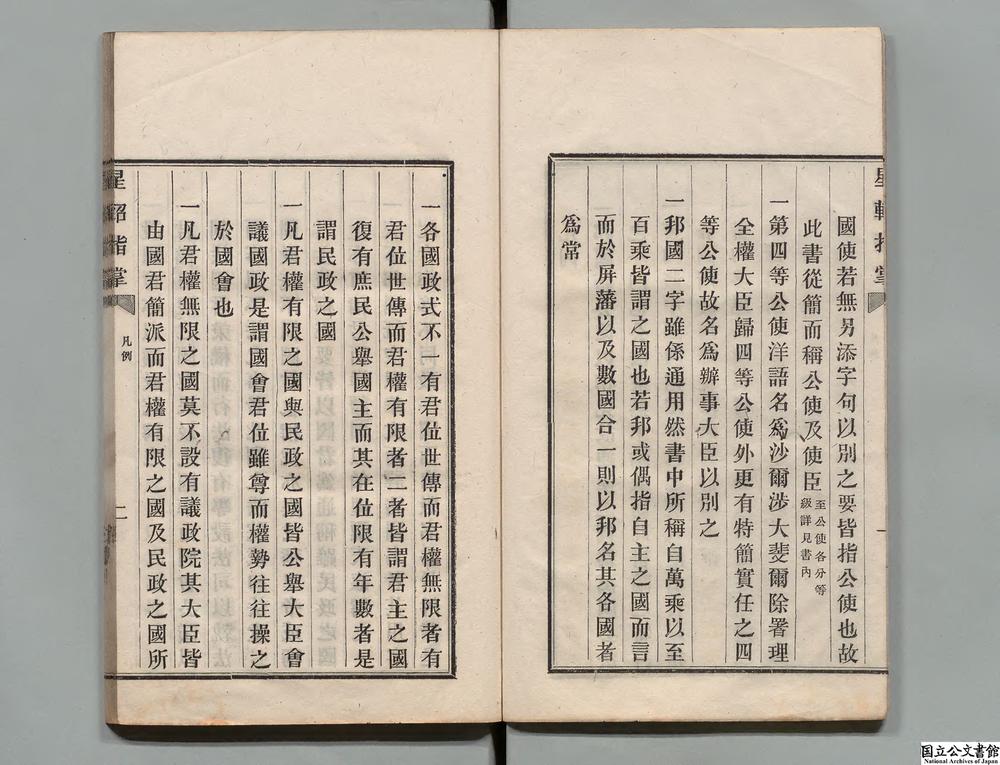 國使若無另添字句以別之要皆指公使也故
此書從簡而稱公使及使臣至公使各分等
級詳見書內
一第四等公使洋語名爲沙爾渉大斐爾除署理
全權大臣歸四等公使外更有特簡實任之四
等公使故名爲辦事大臣以別之
一邦國二字雖係通用然書中所稱自萬乘以至
百乘皆謂之國也若邦或偶指自主之國而言
而於屏藩以及數國合一則以邦名其各國者
爲常
星軺指掌
凡例
一各國政式不一有君位世傳而君權無限者有
君位世傳而君權有限者二者皆謂君主之國
復有庶民公舉國主而其在位限有年數者是
謂民政之國
一凡君權有限之國與民政之國皆公舉大臣會
議國政是謂國會君位雖尊而權勢往往操之
於國會也
一凡君權無限之國莫不設有議政院其大臣皆
由國君簡派而君權有限之國及民政之國所
星軺指掌
凡例
二
国立公文書館
National Archives of Japan